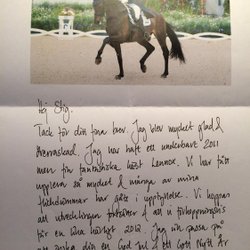 Hej Stig.
Tack för ditt fina brev. Jag blev mycket glad &
överraskad. Jag har haft ett underbart 2011
med min fantastiska häst Lennox. Vi har fått
uppleva så mycket & många av mina
flickdrömmar har gått i uppfyllelse. Vi hoppas
att utvecklingen fortsätter & att vi förhoppningsvis
får en lika härlig 2012. Jag vill passa på
att önska dig en God Jul & ett Gott Nytt År